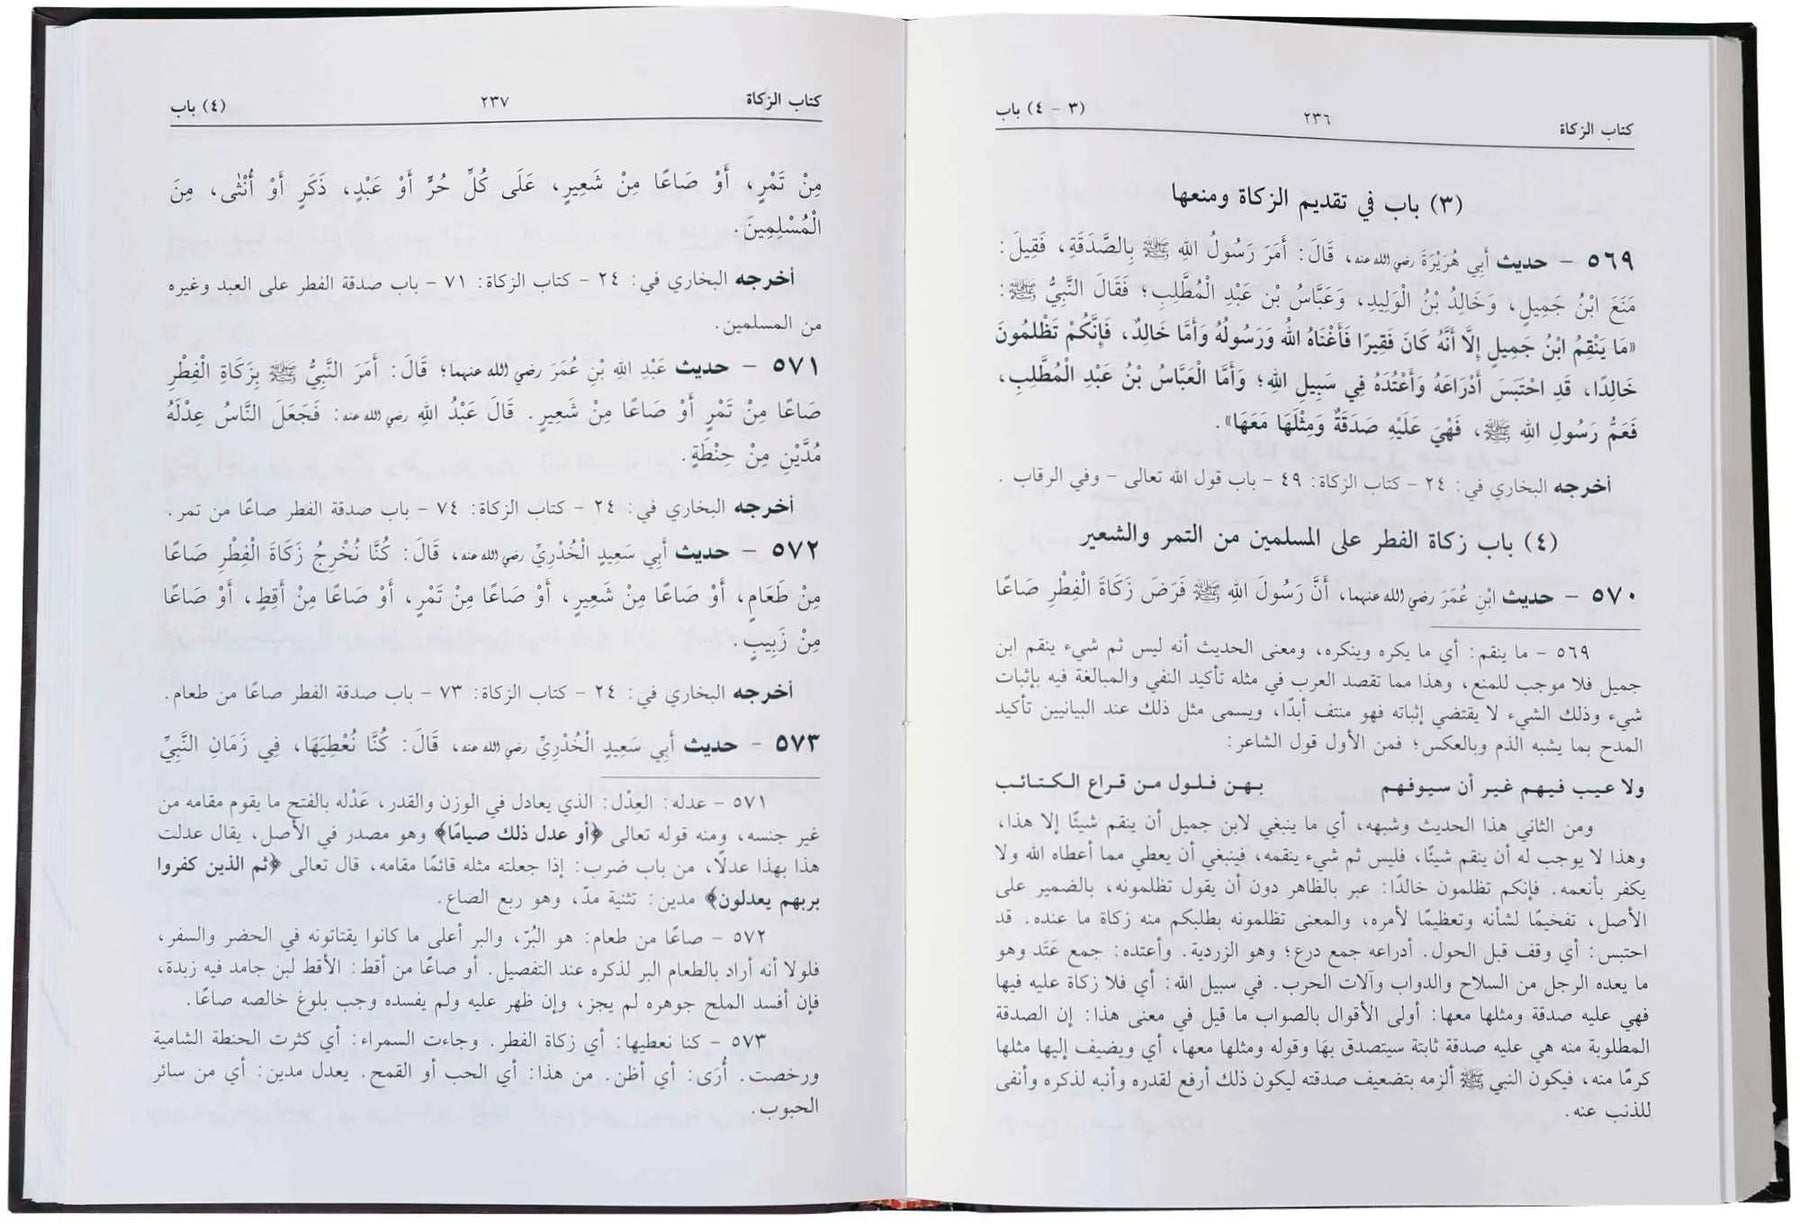 كتاب الزكاة ٢٣٦ (٣ - ٤) باب
(٣) باب في تقديم الزكاة ومنعها
٥٦٩ - حديث أَبِي هُرَيْرَةَ رضي الله عنه، قَالَ: أَمَرَ رَسُولُ اللهِ ﷺ بِالصَّدَقَةِ، فَقِيلَ:
مَنَعَ ابْنُ جَمِيلٍ، وَخَالِدُ بْنُ الْوَلِيدِ، وَعَبَّاسُ بْن عَبْدِ الْمُطَّلِبِ؛ فَقَالَ النَّبِيُّ ﷺ:
«مَا يَنْقِمُ ابْنُ جَمِيلٍ إِلَّا أَنَّهُ كَانَ فَقِيرًا فَأَغْنَاهُ اللهُ وَرَسُولُهُ وَأَمَّا خَالِدٌ، فَإِنَّكُمْ تَظْلِمُونَ
خَالِدًا، قَدِ احْتَبَسَ أَدْرَاعَهُ وَأَعْتُدَهُ فِي سَبِيلِ اللهِ؛ وَأَمَّا الْعَبَّاسُ بْنُ عَبْدِ الْمُطَّلِبِ،
فَعَمُّ رَسُولِ اللهِ ﷺ، فَهْيَ عَلَيْهِ صَدَقَةٌ وَمِثْلَهَا مَعَهَا».
أخرجه البخاري في: ٢٤ - كتاب الزكاة: ٤٩ - باب قول الله تعالى - وفي الرقاب.
(٤) باب زكاة الفطر على المسلمين من التمر والشعير
٥٧٠ - حديث ابْنِ عُمَرَ رضي الله عنهما، أَنَّ رَسُولَ اللهِ ﷺ فَرَضَ زَكَاةَ الْفِطْرِ صَاعًا
٥٦٩ - ما ينقم: أي ما يكره وينكره، ومعنى الحديث أنه ليس ثم شيء ينقم ابن
جميل فلا موجب للمنع، وهذا مما تقصد العرب في مثله تأكيد النفي والمبالغة فيه بإثبات
شيء وذلك الشيء لا يقتضي إثباته فهو منتف أبدًا، ويسمى مثل ذلك عند البيانيين تأكيد
المدح بما يشبه الذم وبالعكس؛ فمن الأول قول الشاعر:
ولا عيب فيهم غير أن سيوفهم بهن فلول من قراع الكتائب
ومن الثاني هذا الحديث وشبهه، أي ما ينبغي لابن جميل أن ينقم شيئًا إلا هذا،
وهذا لا يوجب له أن ينقم شيئًا، فليس ثم شيء ينقمه، فينبغي أن يعطي مما أعطاه الله ولا
يكفر بأنعمه. فإنكم تظلمون خالدًا: عبر بالظاهر دون أن يقول تظلمونه، بالضمير على
الأصل، تفخيمًا لشأنه وتعظيمًا لأمره، والمعنى تظلمونه بطلبكم منه زكاة ما عنده. قد
احتبس: أي وقف قبل الحول. أدراعه جمع درع؛ وهو الزردية. وأعتده: جمع عَتَد وهو
ما يعده الرجل من السلاح والدواب وآلات الحرب. في سبيل الله: أي فلا زكاة عليه فيها
فهي عليه صدقة ومثلها معها: أولى الأقوال بالصواب ما قيل في معنى هذا: إن الصدقة
المطلوبة منه هي عليه صدقة ثابتة سيتصدق بهَا وقوله ومثلها معها، أي ويضيف إليها مثلها
كرمًا منه، فيكون النبي ﷺ ألزمه بتضعيف صدقته ليكون ذلك أرفع لقدره وأنبه لذكره وأنفى
للذنب عنه.
كتاب الزكاة ٢٣٧ (٤) باب
مِنْ تَمْرٍ، أَوْ صَاعًا مِنْ شَعِيرٍ، عَلَى كُلِّ حُرٍّ أَوْ عَبْدٍ، ذَكَرٍ أَوْ أُنْثَى، مِنَ
الْمُسْلِمِينَ.
أخرجه البخاري في: ٢٤ - كتاب الزكاة: ٧١ - باب صدقة الفطر على العبد وغيره
من المسلمين.
٥٧١ - حديث عَبْدِ اللهِ بْنِ عُمَرَ رضي الله عنهما؛ قَالَ: أَمَرَ النَّبِيُّ ﷺ بِزَكَاةِ الْفِطْرِ
صَاعًا مِنْ تَمْرٍ أَوْ صَاعًا مِنْ شَعِيرٍ. قَالَ عَبْدُ اللهِ رضي الله عنه: فَجَعَلَ النَّاسُ عِدْلَهُ
مُدَّيْنِ مِنْ حِنْطَةٍ.
أخرجه البخاري في: ٢٤ - كتاب الزكاة: ٧٤ - باب صدقة الفطر صاعًا من تمر.
٥٧٢ - حديث أَبِي سَعِيدٍ الْخُدْرِيِّ رضي الله عنه، قَالَ: كُنَّا نُخْرِجُ زَكَاةَ الْفِطْرِ صَاعًا
مِنْ طَعَامٍ، أَوْ صَاعًا مِنْ شَعِيرٍ، أَوْ صَاعًا مِنْ تَمْرٍ، أَوْ صَاعًا مِنْ أَقِطٍ، أَوْ صَاعًا
مِنْ زَبِيبٍ.
أخرجه البخاري في: ٢٤ - كتاب الزكاة: ٧٣ - باب صدقة الفطر صاعًا من طعام.
٥٧٣ - حديث أَبِي سَعِيدٍ الْخُدْرِيِّ رضي الله عنه، قَالَ: كُنَّا نُعْطِيَهَا، فِي زَمَانِ النَّبِيِّ
٥٧١ - عدله: العِدْل: الذي يعادل في الوزن والقدر، عَدْله بالفتح ما يقوم مقامه من
غير جنسه، ومنه قوله تعالى ﴿أو عدل ذلك صيامًا﴾ وهو مصدر في الأصل، يقال عدلت
هذا بهذا عدلًا، من باب ضرب: إذا جعلته مثله قائمًا مقامه، قال تعالى ﴿ثم الذين كفروا
بربهم يعدلون﴾ مدين: تثنية مدّ، وهو ربع الصاع.
٥٧٢ - صاعًا من طعام: هو البُرّ، والبر أعلى ما كانوا يقتاتونه في الحضر والسفر،
فلولا أنه أراد بالطعام البر لذكره عند التفصيل. أو صاعًا من أقط: الأقط لبن جامد فيه زبدة،
فإن أفسد الملح جوهره لم يجز، وإن ظهر عليه ولم يفسده وجب بلوغ خالصه صاعًا.
٥٧٣ - كنا نعطيها: أي زكاة الفطر. وجاءت السمراء: أي كثرت الحنطة الشامية
ورخصت. أُرَى: أي أظن. من هذا: أي الحب أو القمح. يعدل مدين: أي من سائر
الحبوب.